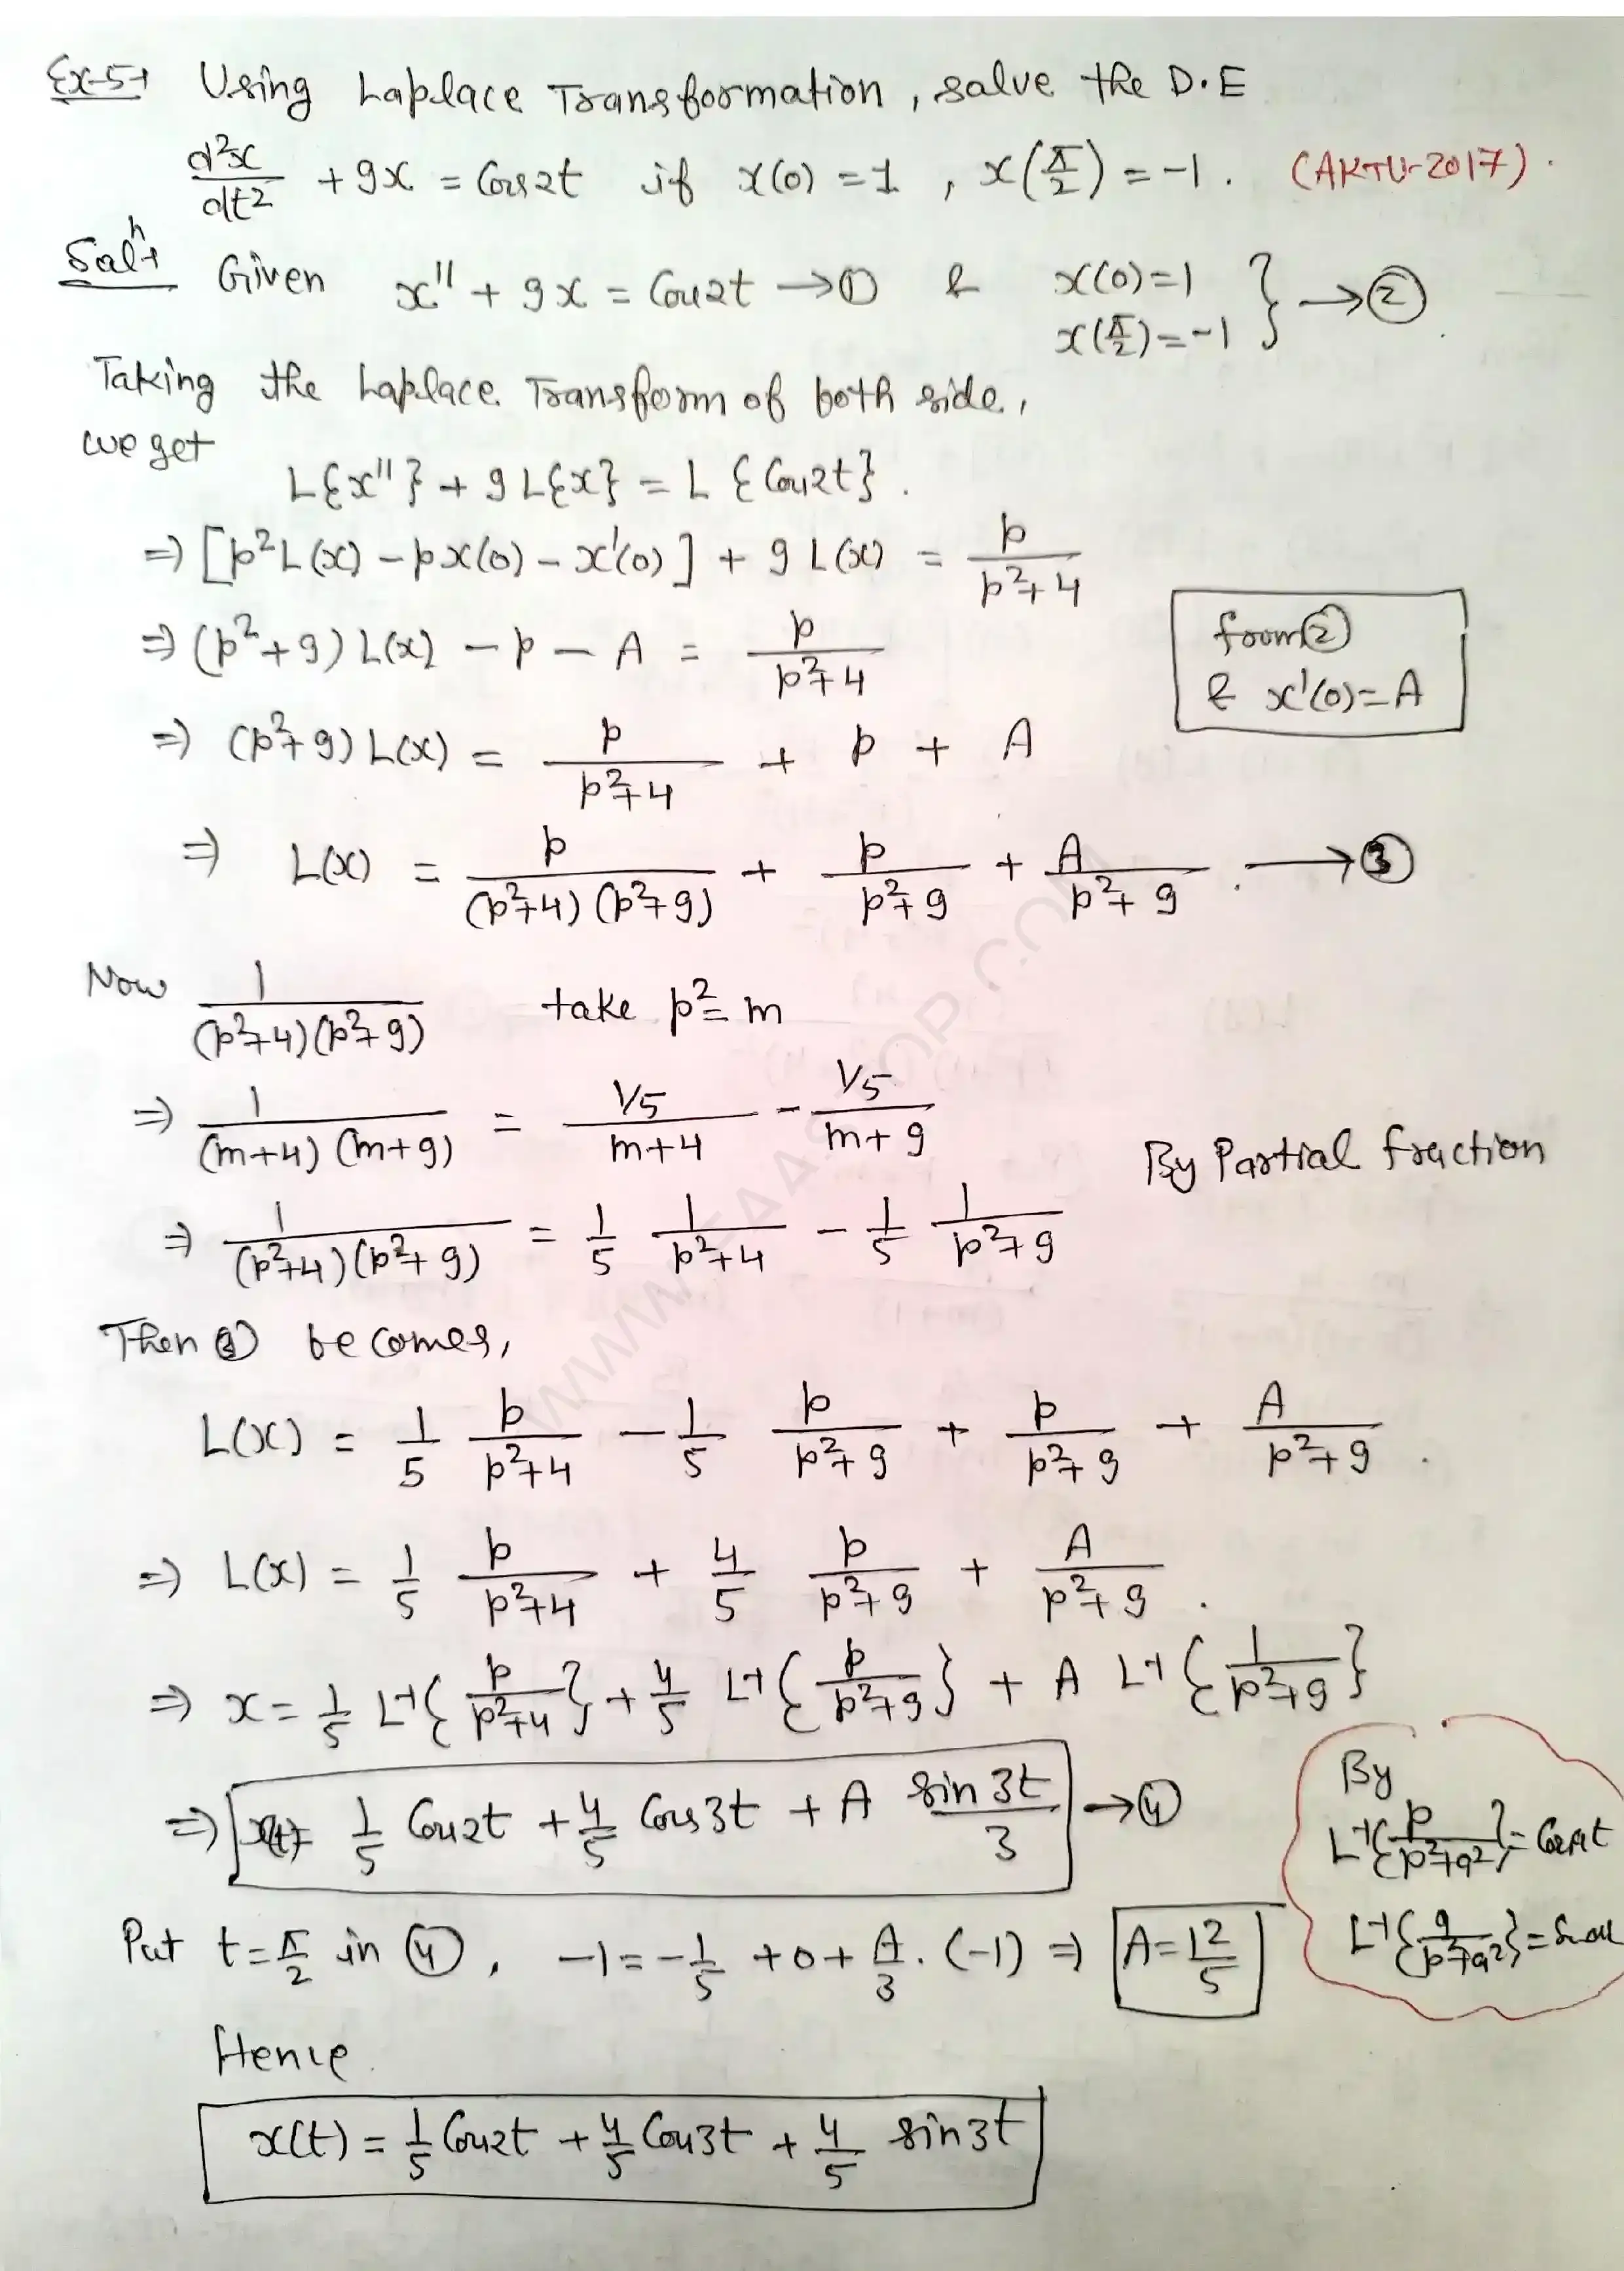 Ex-5→ Using Laplace Transformation, solve the D.E
d²x/dt² + 9x = Cos2t if x(0) = 1, x(π/2) = -1. (AKTU-2017).
Solⁿ→ Given x'' + 9x = Cos2t → ① & x(0)=1, x(π/2)=-1 } → ②
Taking the Laplace Transform of both side,
we get
L{x''} + 9L{x} = L{Cos2t}.
⇒ [p²L(x) - px(0) - x'(0)] + 9L(x) = p/(p²+4)
⇒ (p²+9)L(x) - p - A = p/(p²+4)
from ②
& x'(0)=A
⇒ (p²+9)L(x) = p/(p²+4) + p + A
⇒ L(x) = p/((p²+4)(p²+9)) + p/(p²+9) + A/(p²+9). → ③
Now 1/((p²+4)(p²+9)) take p²=m
⇒ 1/((m+4)(m+9)) = (1/5)/(m+4) - (1/5)/(m+9)
By Partial fraction
⇒ 1/((p²+4)(p²+9)) = 1/5 1/(p²+4) - 1/5 1/(p²+9)
Then ③ becomes,
L(x) = 1/5 p/(p²+4) - 1/5 p/(p²+9) + p/(p²+9) + A/(p²+9).
⇒ L(x) = 1/5 p/(p²+4) + 4/5 p/(p²+9) + A/(p²+9).
⇒ x = 1/5 L⁻¹{p/(p²+4)} + 4/5 L⁻¹{p/(p²+9)} + A L⁻¹{1/(p²+9)}
⇒ x(t) = 1/5 Cos2t + 4/5 Cos3t + A sin3t/3 → ④
By
L⁻¹{p/(p²+a²)} = Cosat
L⁻¹{a/(p²+a²)} = Sinat
Put t=π/2 in ④, -1 = -1/5 + 0 + A/3.(-1) ⇒ A=12/5
Hence
x(t) = 1/5 Cos2t + 4/5 Cos3t + 4/5 sin3t